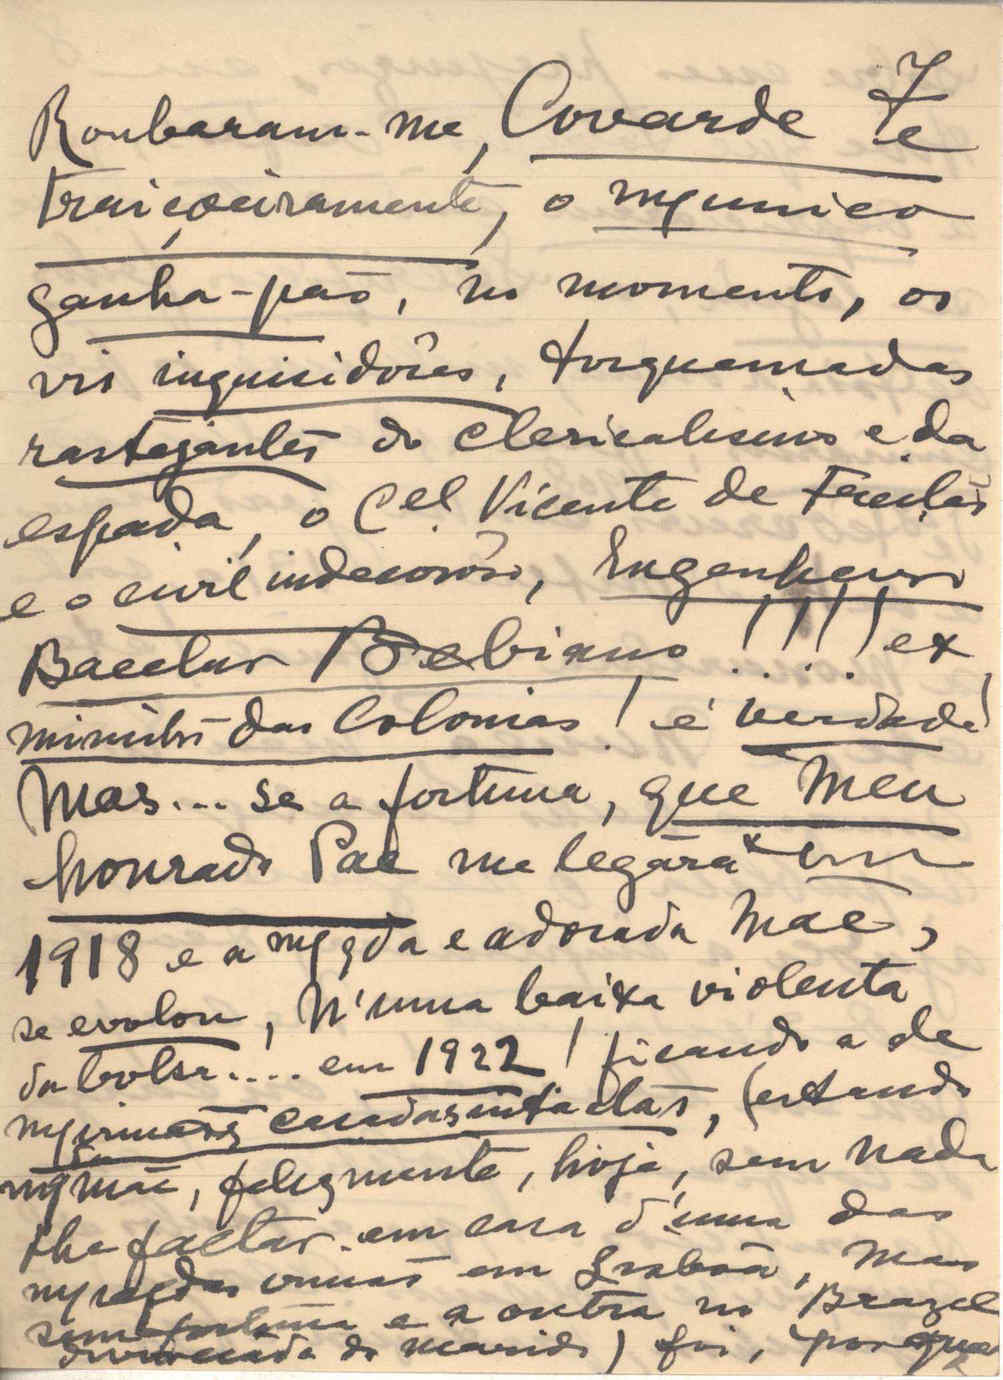 7
Roubaram-me, Covarde e
traiçoeiramente, o meu unico
ganha-pão, no momento, os
vis inquisidôres, torquemadas
rastejantes do clericalismo e da
espada, o Cel Vicente de Freitas
e o civil indecorôso, Engenheiro
Bacelar Bebiano !!!! ex
ministro das Colonias! é verdade!
Mas... se a fortuna, que Meu
honrado Pae me legára em
1918 e a mª qda e adorada Mãe,
se evolou, N'uma baixa violenta
da bolsa.... em 1922! ficando a de
mªs irmãs casadas intactas, (estando
mª mãe, felizmente, hoje, sem nada
lhe faltar. em casa d'uma das
mªs qdas irmãs em Lisboa, mas
sem fortuna e a outra no Brazil
divorciada do marido) foi, porque